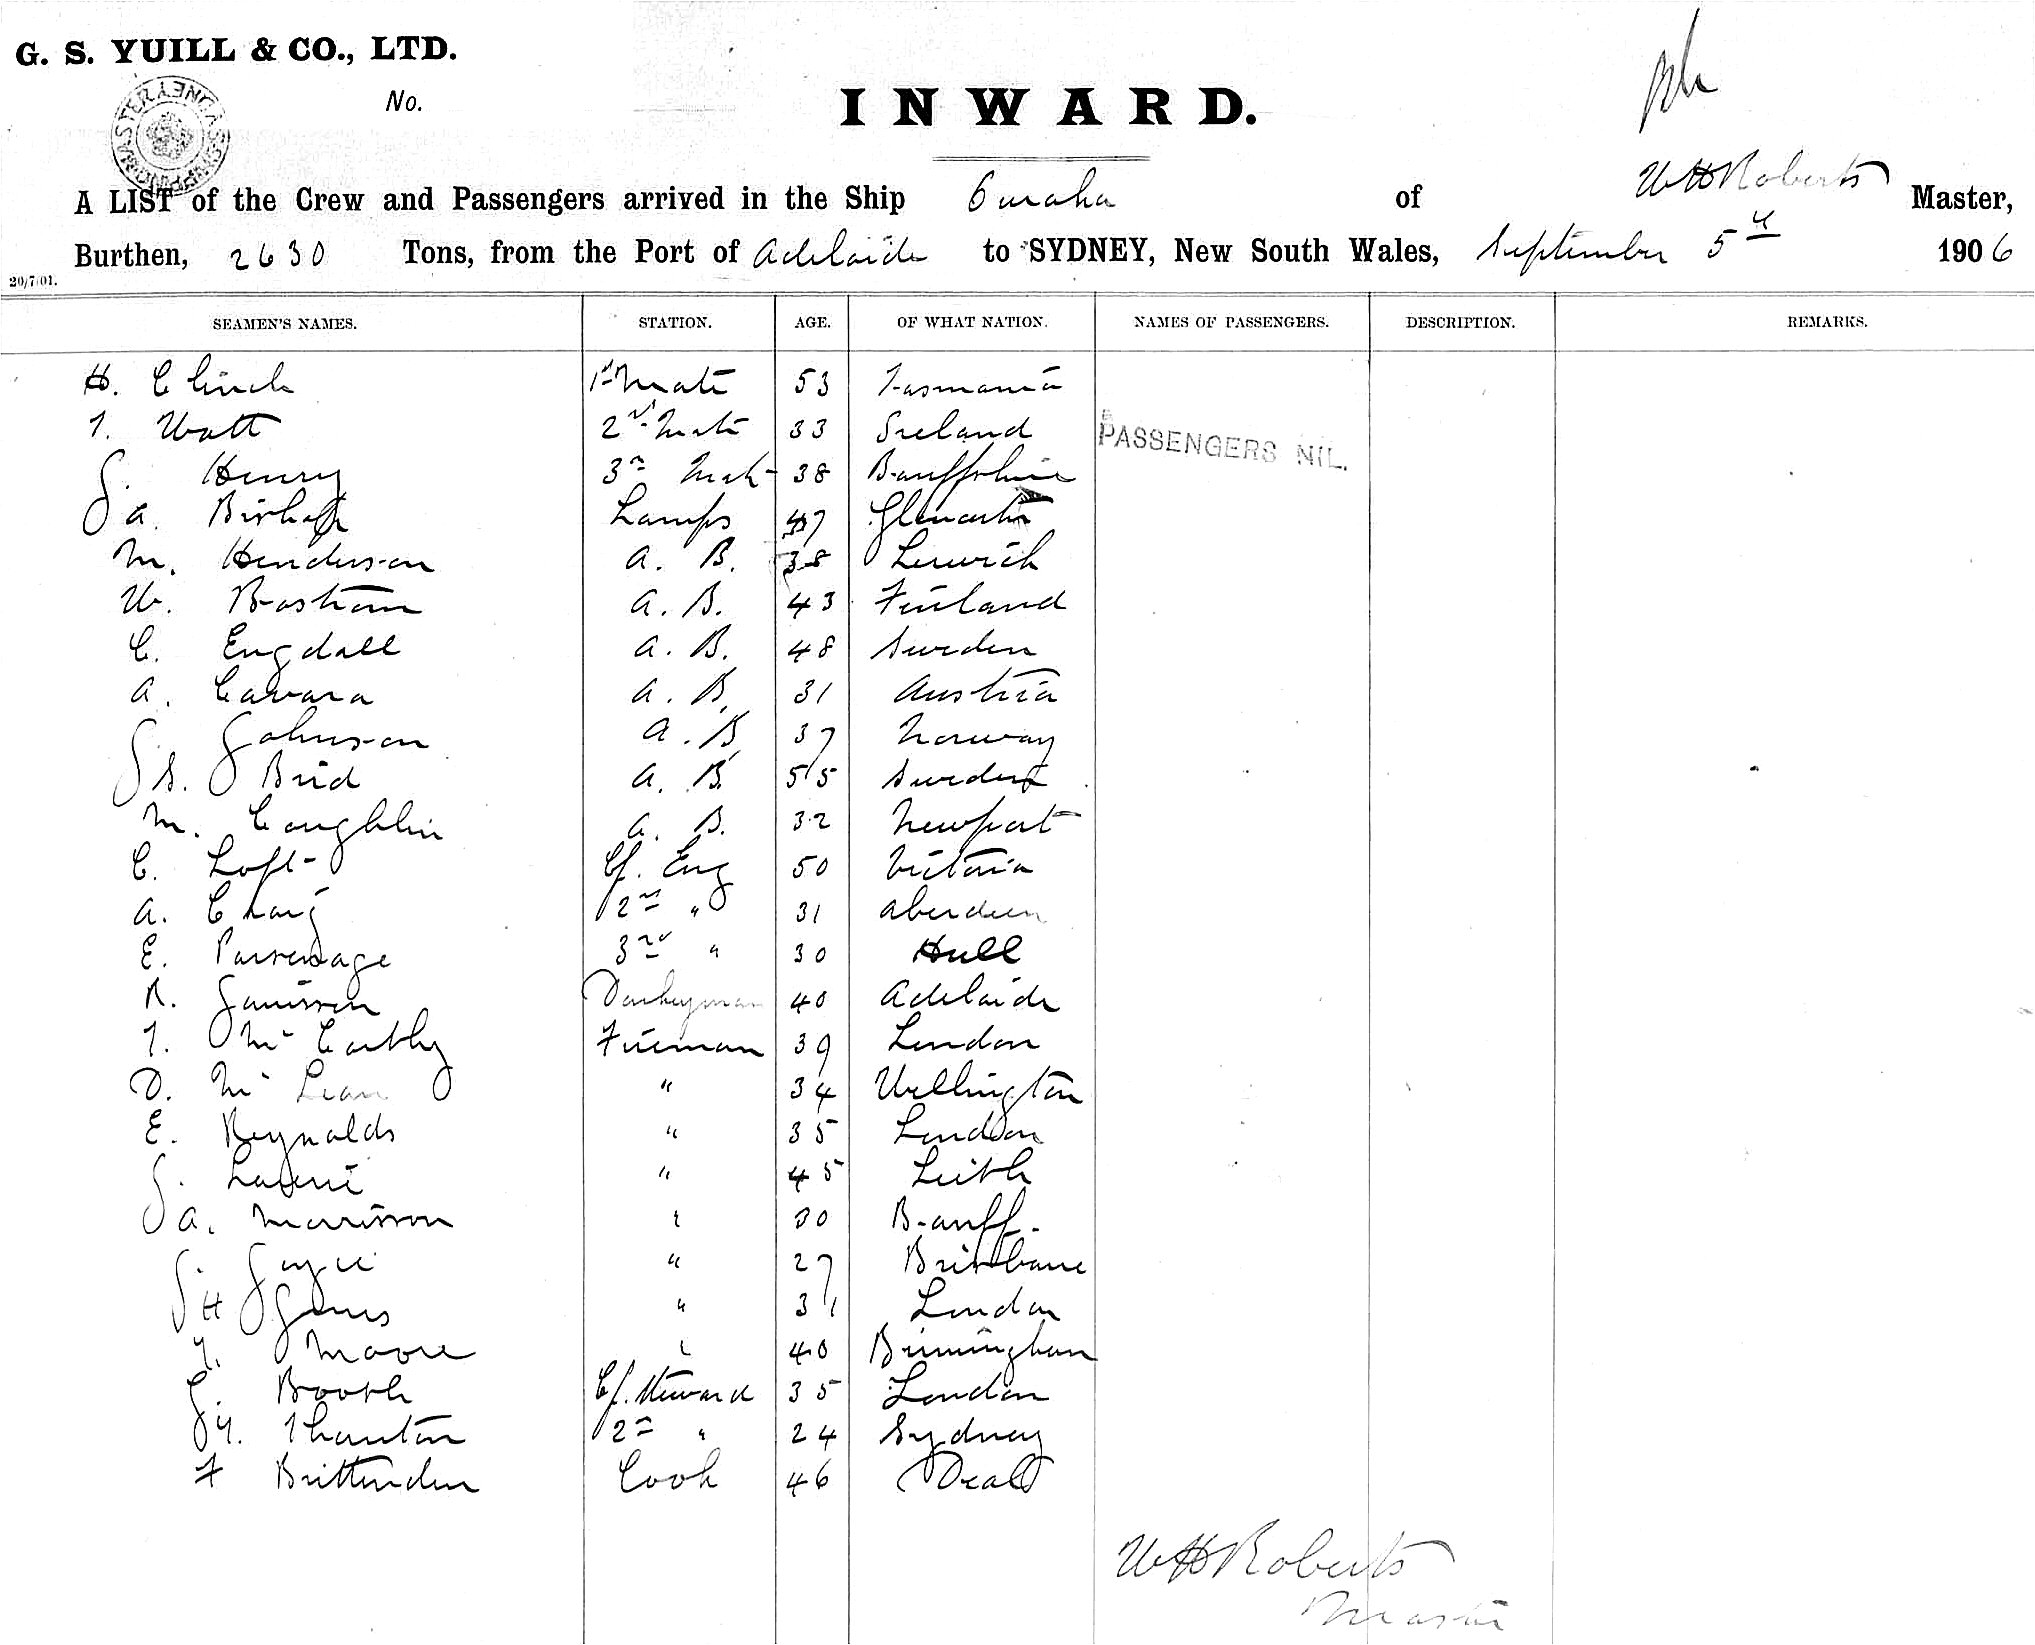 G. S. YUILL & CO., LTD.
No.
INWARD.
A LIST of the Crew and Passengers arrived in the Ship Ouraka of W H Roberts Master,
Burthen, 2630 Tons, from the Port of Adelaide to SYDNEY, New South Wales, September 5th 1906
20/7/01.
SEAMEN'S NAMES. STATION. AGE. OF WHAT NATION. NAMES OF PASSENGERS. DESCRIPTION. REMARKS.
H. Clinch 1st Mate 53 Tasmania
T. Watt 2nd Mate 33 Ireland
PASSENGERS NIL.
J. Henry 3rd Mate 38 Banffshire
J. A. Bishop Lamps 47
M. Henderson A. B. 38 Lerwick
W. Bostrom A. B. 43 Finland
C. Engdall A. B. 48 Sweden
A. Cavara A. B. 31 Austria
J. Johnson A. B. 37 Norway
J. S. Brid A. B. 55 Sweden
M. Coughlin A. B. 32 Newport
C. Loft Cf. Eng 50 Victoria
A. Craig 2nd " 31 Aberdeen
E. Parsonage 3rd " 30 Hull
R. Jamisson Donkeyman 40 Adelaide
T. McCarthy Fireman 39 London
D. McLean " 34 Wellington
E. Reynolds " 35 London
J. Laurie " 45 Leith
J. A. Morrison " 30 Banff.
J. Joyce " 27 Brisbane
J H Jones " 31 London
T. Moore " 40 Birmingham
C. Booth Cf. Steward 35 London
J. Y. Thornton 2nd " 24 Sydney
F Brittenden Cook 46 Deal
W H Roberts
Master